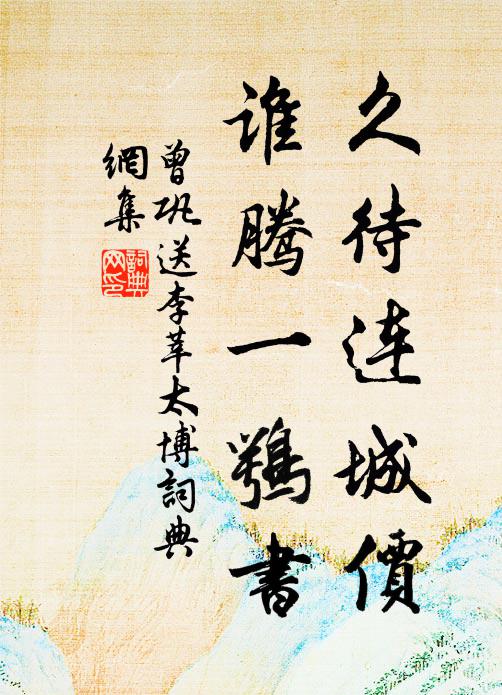 久待连城價
谁腾一鶚書
曾巩送李莘太博詞典
網集
詞典
网印